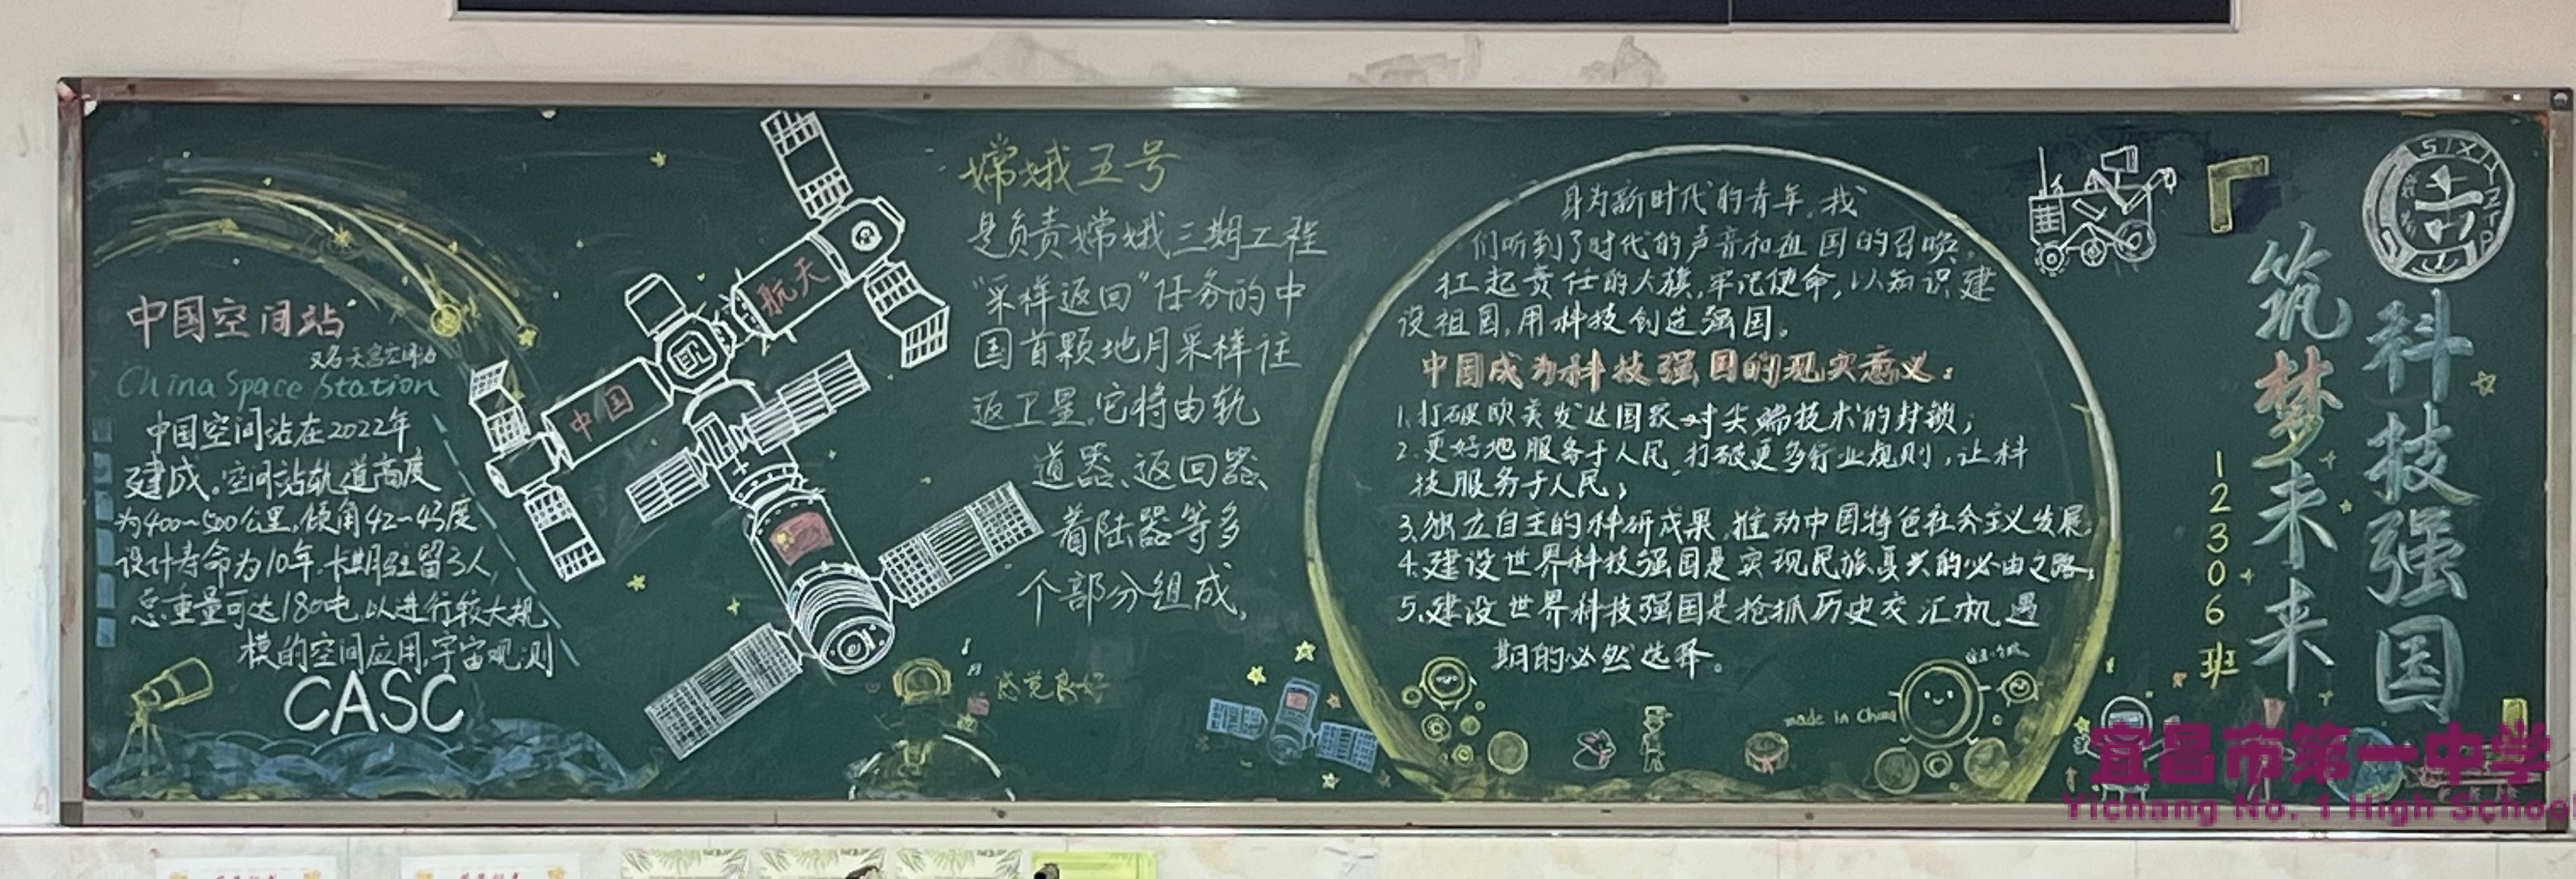 中国空间站
又名天宫空间站
China Space Station
中国空间站在2022年
建成。空间站轨道高度
为400~500公里,倾角42~43度
设计寿命为10年,长期驻留3人,
总重量可达180吨,以进行较大规
模的空间应用,宇宙观测
CASC
航天
中国
嫦娥五号
是负责嫦娥三期工程
“采样返回”任务的中
国首颗地月采样往
返卫星,它将由轨
道器、返回器、
着陆器等多
个部分组成。
感觉良好
身为新时代的青年,我
们听到了时代的声音和祖国的召唤,
扛起责任的大旗,牢记使命,以知识建
设祖国,用科技创造强国。
中国成为科技强国的现实意义:
1.打破欧美发达国家对尖端技术的封锁;
2.更好地服务于人民,打破更多行业规则,让科
技服务于人民;
3.独立自主的科研成果,推动中国特色社会主义发展.
4.建设世界科技强国是实现民族复兴的必由之路;
5.建设世界科技强国是抢抓历史交汇机遇
期的必然选择。
made in China
SIXIYZTP
科技强国
筑梦未来
12306班
宜昌市第一中学
Yichang No. 1 High School